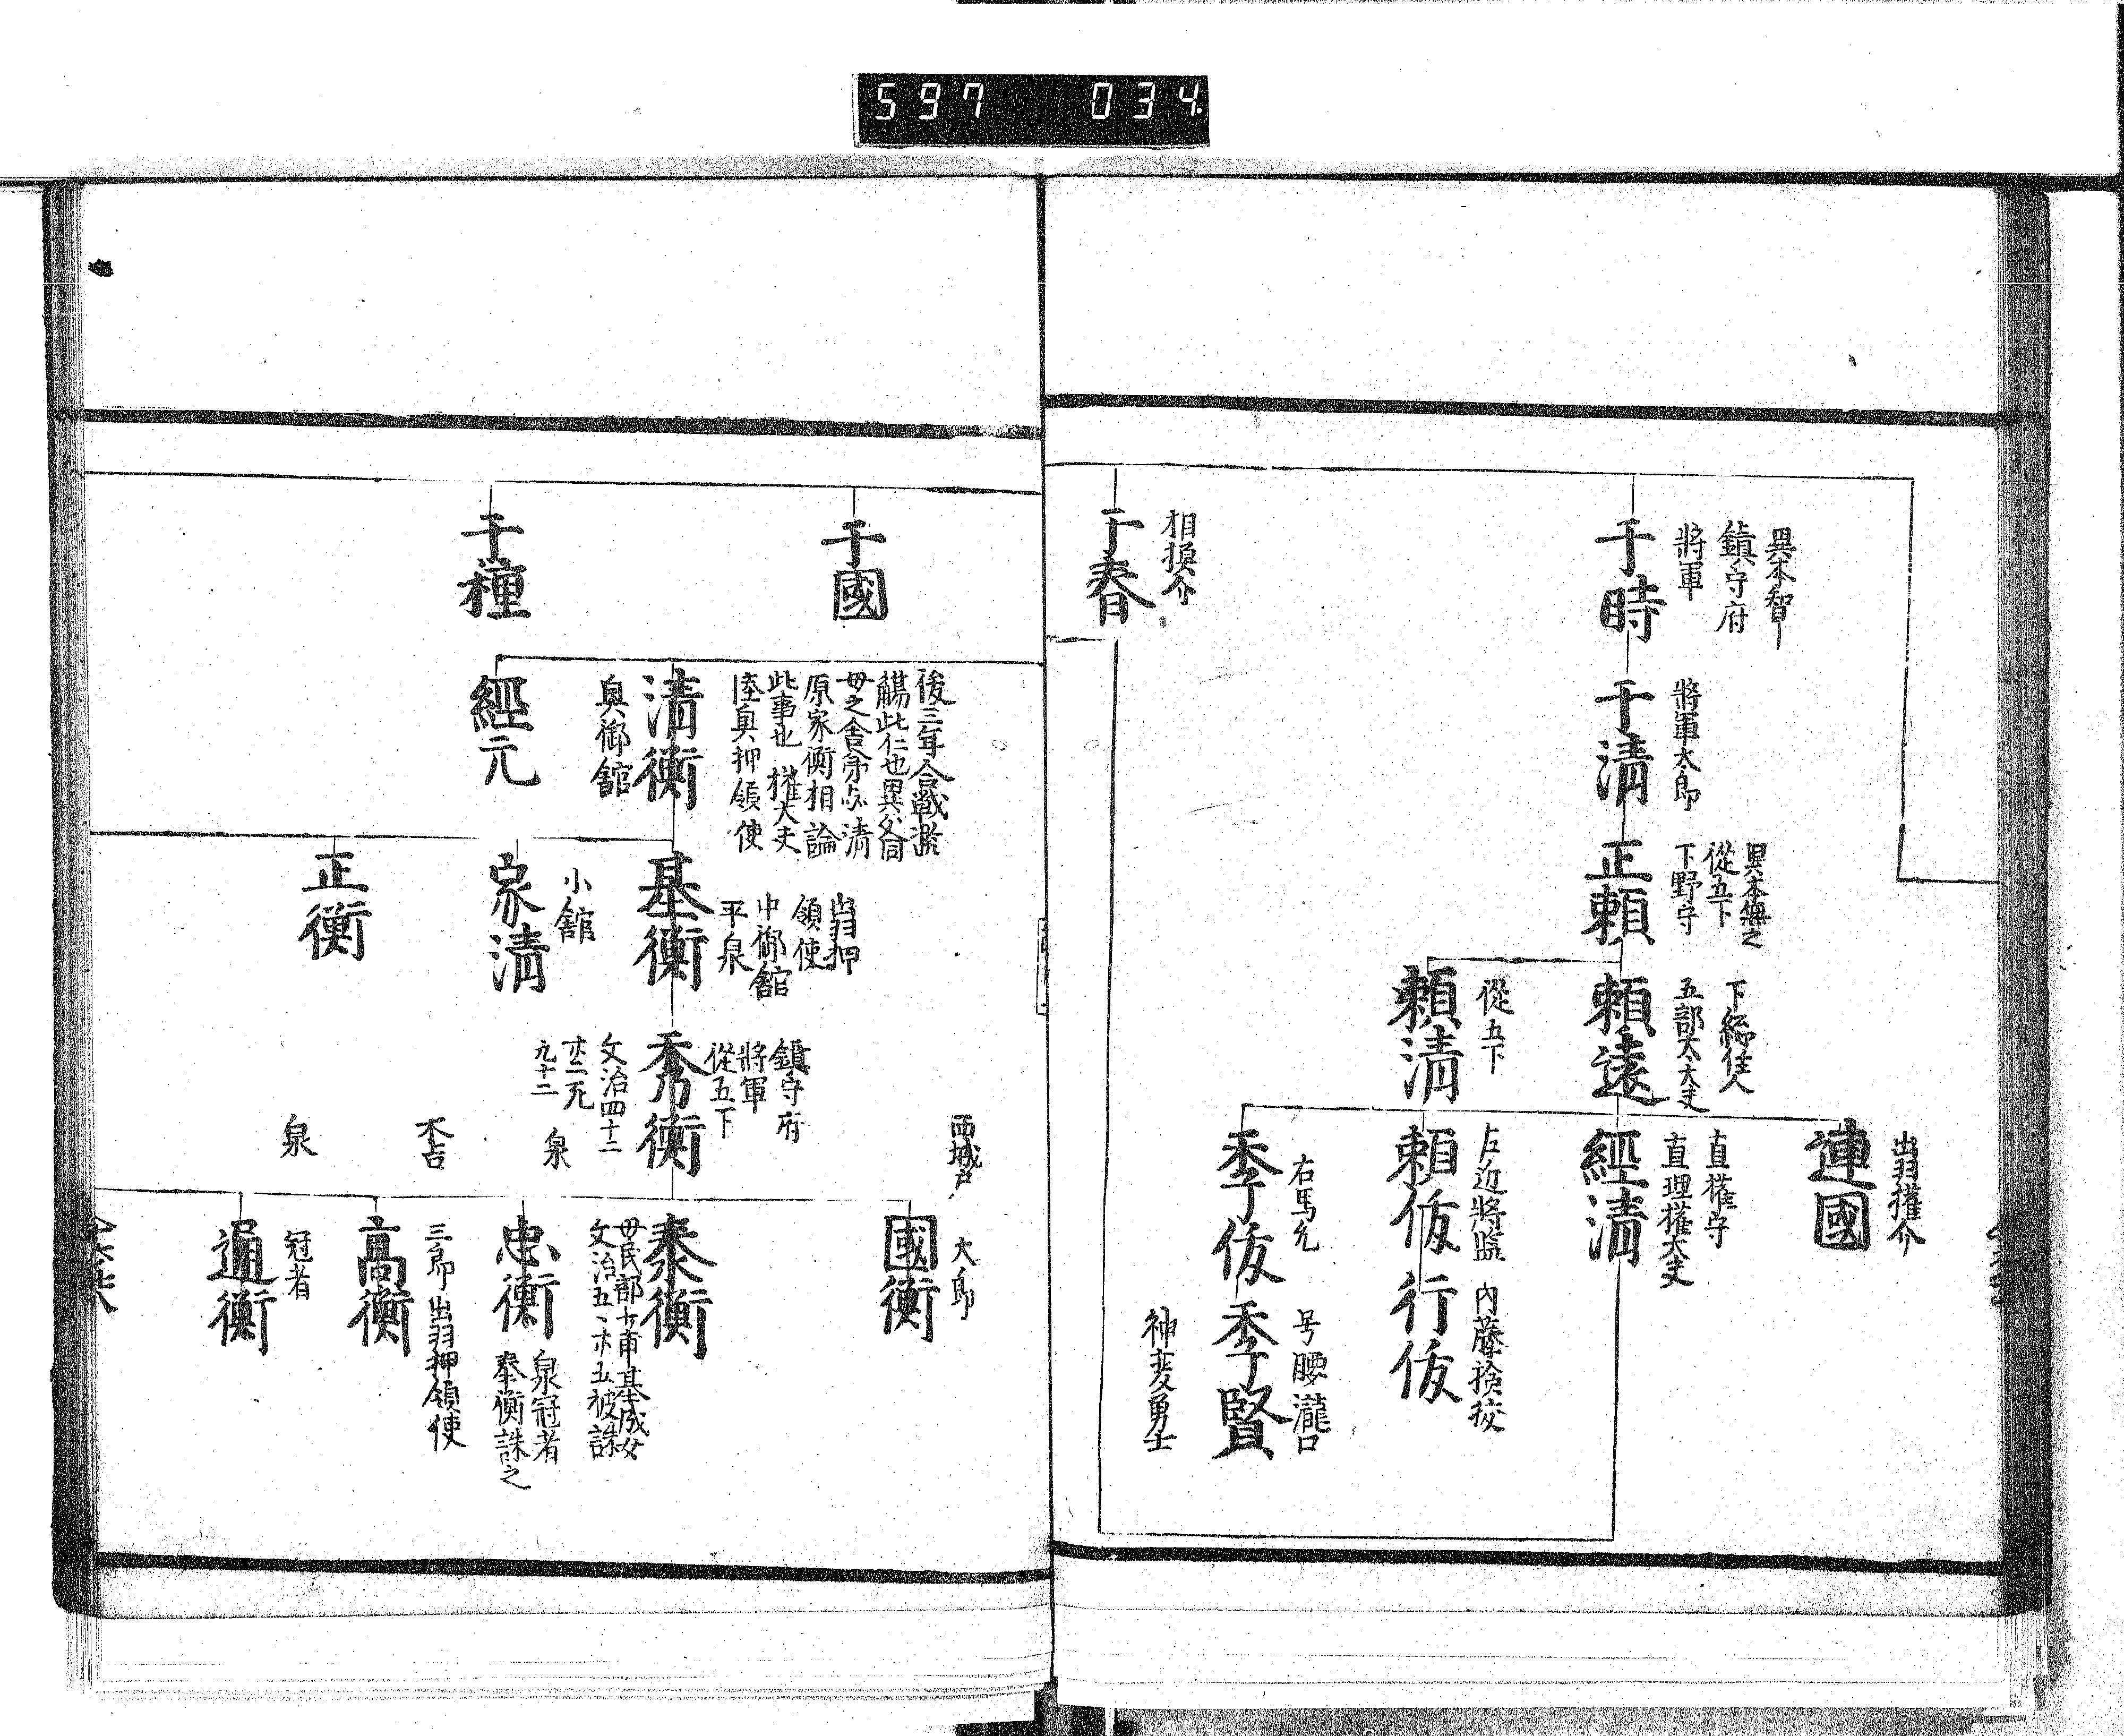 597 034
異本智
鎮守府
將軍
千時
將軍太郎
千清
異本無之
從五下
下野守
正頼
下総住人
五郡太大夫
頼遠
從五下
頼清
出羽権介
連國
亘権守
亘理権大夫
經清
右近將監
頼俊
内藤検校
行俊
右馬允
季俊
号腰瀧口
季賢
神変勇士
相摸介
千春
千國
千種
後三年合戰濫
觴此仁也異父同
母之舎弟与清
原家衡相論
此事也 権大夫
陸奥押領使
清衡
奥御舘
經元
出羽押
領使
中御舘
平泉
基衡
小舘
家清
正衡
鎮守府
將軍
從五下
秀衡
文治四十二
廿二死
九十二
西城戸
大郎
國衡
泰衡
母民部少甫基成女
文治五、廿五被誅
泉
忠衡
泉冠者
泰衡誅之
本吉
三郎 出羽押領使
高衡
泉
冠者
通衡